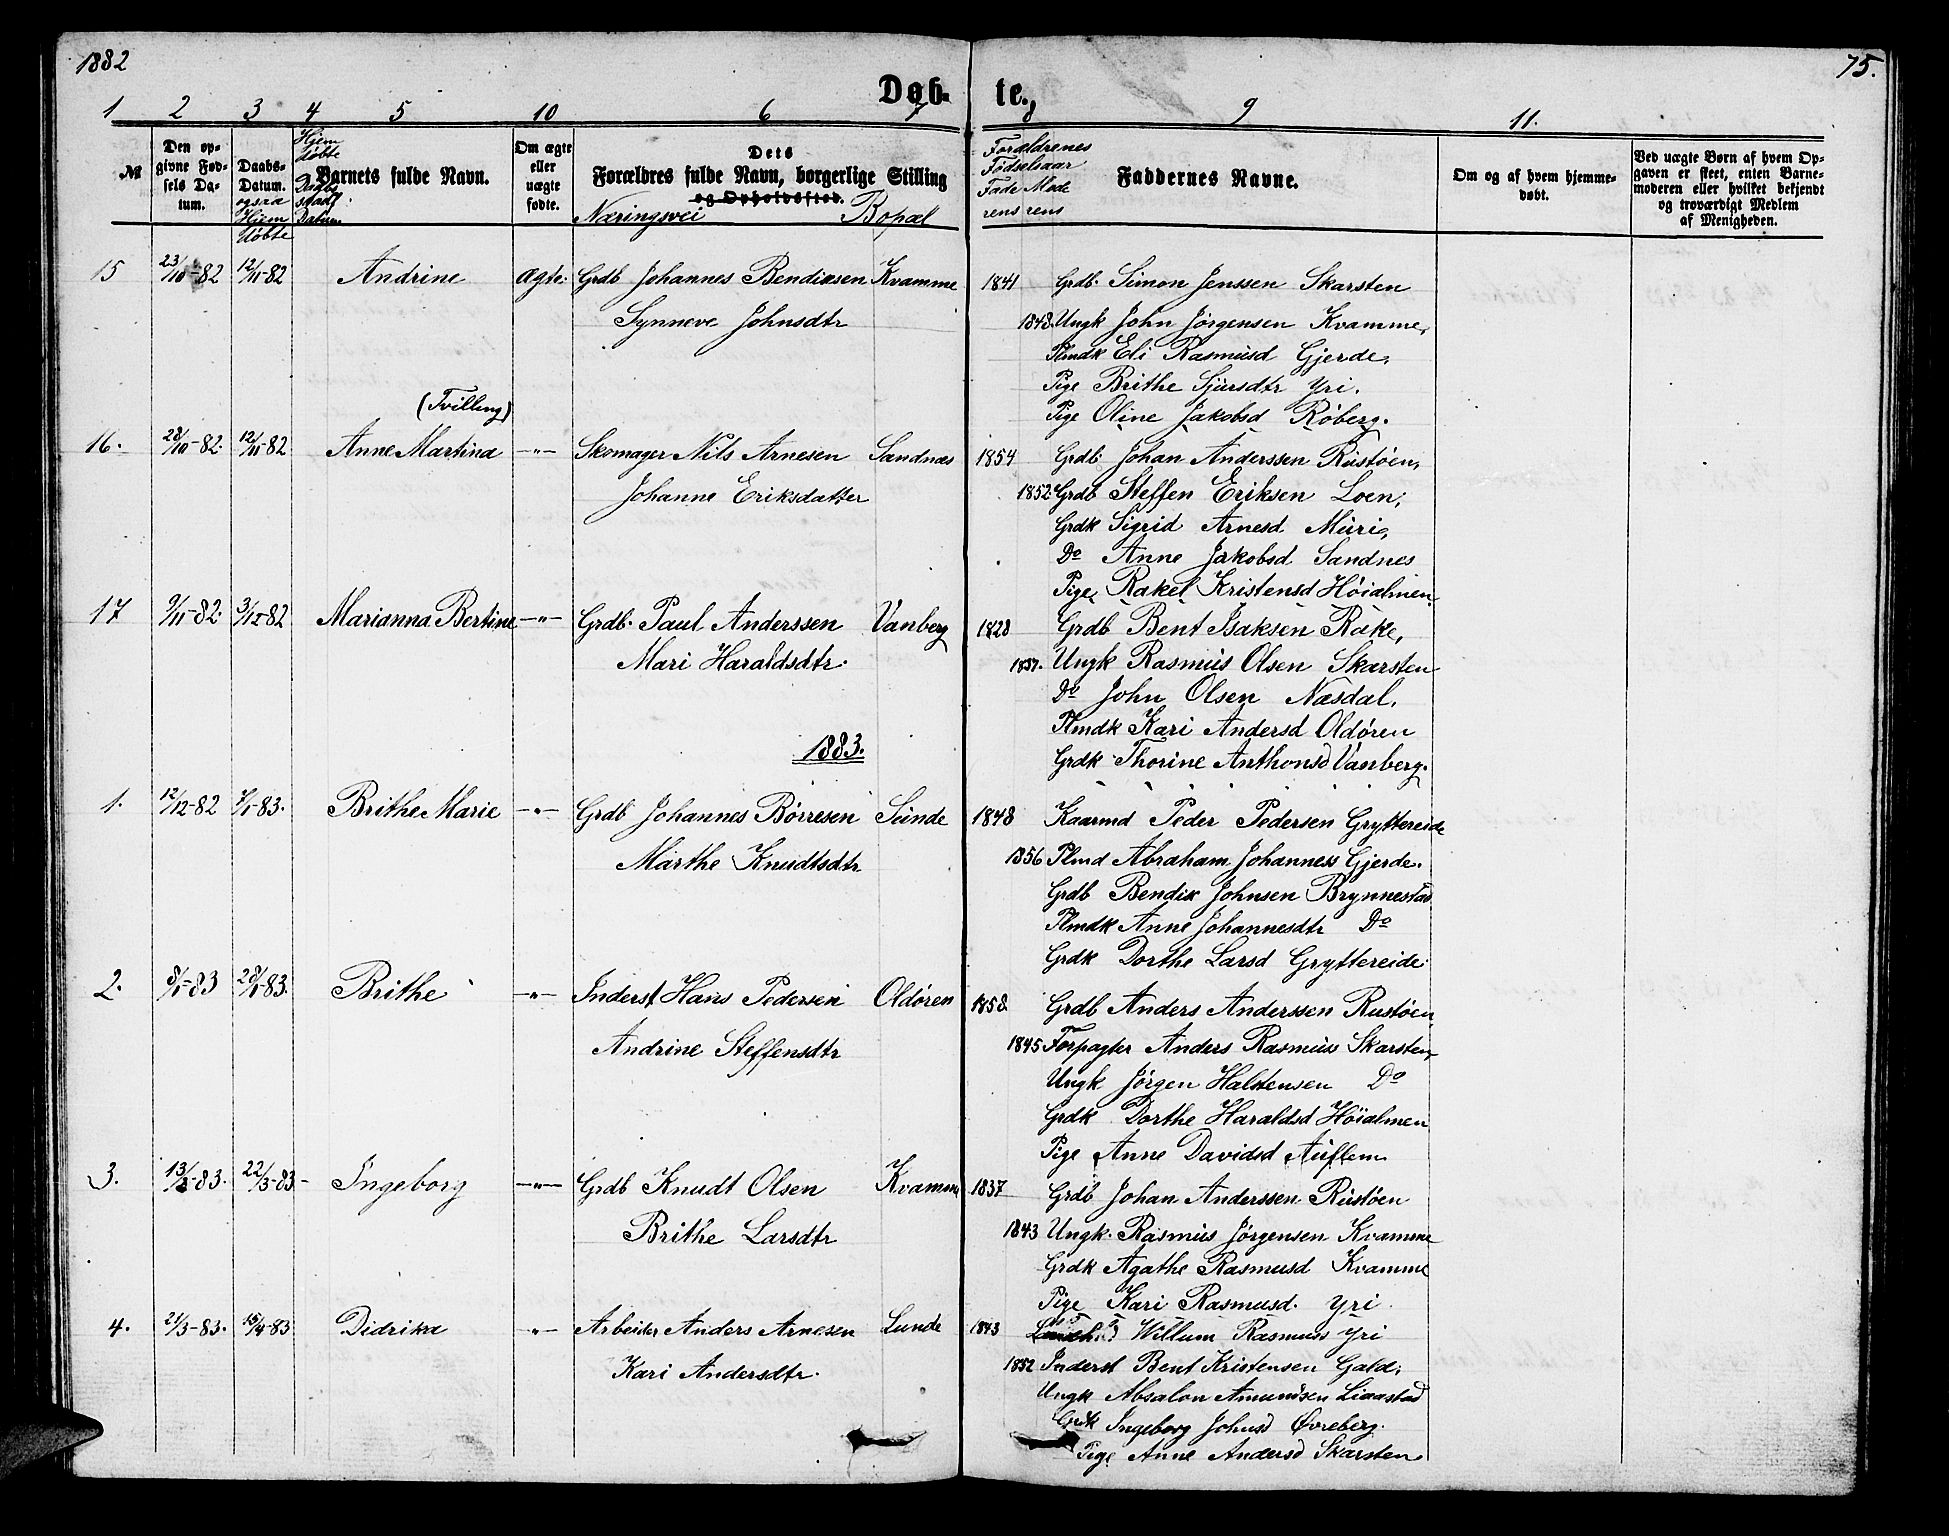 1882
75.
Døb- te.
1 2 3 4 5 10 6 7 8 9 11.
№
Den opgivne Fødsels Datum.
Daabs-Datum. ogsaa Hjem døbte
Hjem døbte Daabs stadf. Datum
Barnets fulde Navn.
Om ægte eller uægte fødte.
Dets Forældres fulde Navn, borgerlige Stilling og Opholdssted.
Næringsvei Bopæl
Forældrenes Fødselsaar Fade Mode rens rens
Faddernes Navne.
Om og af hvem hjemmedøbt.
Ved uægte Børn af hvem Opgaven er skeet, enten Barnemoderen eller hvilket bekjendt og troværdigt Medlem af Menigheden.
15 23/10-82 12/11-82 Andrine ægte Grdb Johannes Bendixsen Kvamme 1841 Grdb. Simon Jenssen Skarsten
Synneve Johnsdtr 1848. Ungk John Jørgensen Kvamme,
Plmdk Eli Rasmusd Gjerde,
Pige Brithe Sjursdtr Yri.
(Tvilling) Pige Oline Jakobsd Røberg.
16. 28/10-82. 12/11-82 Anne Martina -"- Skomager Nils Arnesen Sandnæs 1854 Grdb Johan Anderssen Rustøen,
Johanne Eriksdatter 1852 Grdb Steffen Eriksen Loen,
Grdk Sigrid Arnesd Muri,
Do Anne Jakobsd Sandnes
Pige Rakel Kristensd Høialmen.
17 9/11-82. 3/12-82 Marianna Bertine -"- Grdb. Paul Anderssen Vanberg 1828 Grdb Bent Isaksen Rake,
Mari Haraldsdtr. 1837. Ungk Rasmus Olsen Skarsten
Do John Olsen Næsdal,
Plmdk Kari Andersd Oldøren
1883. Grdk Thorine Anthonsd Vanberg.
1. 12/12-82 7/1-83. Brithe Marie -"- Grdb Johannes Børresen Sunde 1848 Kaarmd Peder Pedersen Gryttereide
Marthe Knudtsdtr 1856 Plmd Abraham Johanness Gjerde.
Grdb Bendix Johnsen Brynnestad
Plmdk Anne Johannesdtr Do
Grdk Dorthe Larsd Gryttereide
2. 8/1-83 28/1-83. Brithe -"- Inderst Hans Pedersen Oldøren 1858 Grdb Anders Anderssen Rustøen
Andrine Steffensdtr 1845 Forpagter Anders Rasmuss Skarsten,
Ungk Jørgen Halstensen Do
Grdk Dorthe Haraldsd Høialmen
Pige Anne Davidsd Auflem
3. 13/2-83. 22/3-83- Ingeborg -"- Grdb Knudt Olsen Kvamme 1837 Grdb Johan Anderssen Rustøen
Brithe Larsdtr 1843 Ungk. Rasmus Jørgensen Kvamme
Grdk Agathe Rasmusd Kvamme
Pige Kari Rasmusd. Yri
4. 21/3-83. 15/4-83 Didrika -"- Arbeider Anders Arnesen Lunde 1843 Willum Rasmuss Yri
Kari Andersdtr. 1852 Inderst Bent Kristensen Gald,
Ungk Absalon Amundsen Liaastad
Grdk Ingeborg Johnsd Øvreberg.
Pige Anne Andersd Skarsten